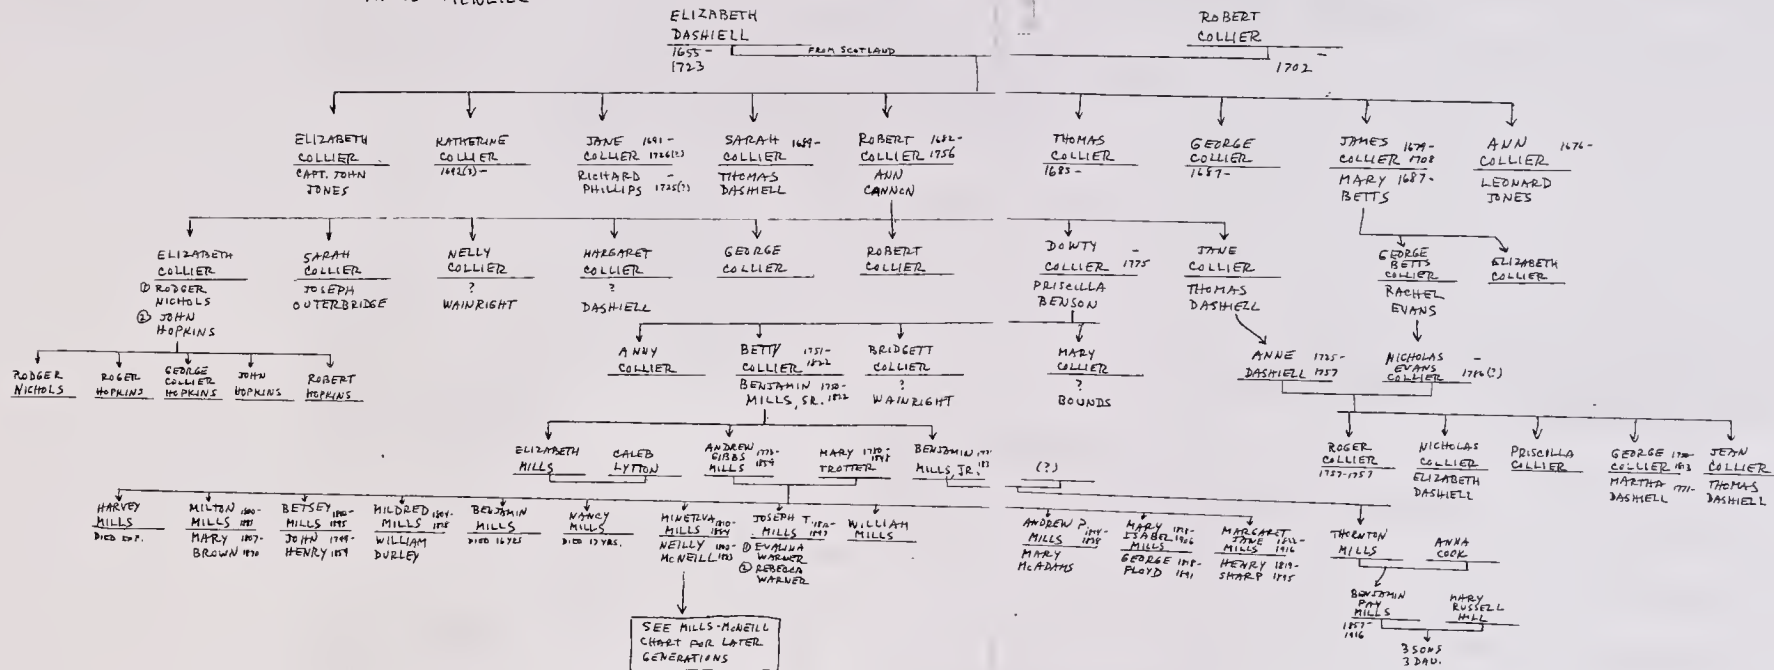 ELIZABETH
DASHIELL
1655 -
1723
FROM SCOTLAND
ROBERT
COLLIER
-
1702
ELIZABETH
COLLIER
CAPT. JOHN
JONES
KATHERINE
COLLIER
1692(?)-
JANE 1691-
COLLIER 1726(?)
RICHARD -
PHILLIPS 1725(?)
SARAH 1689-
COLLIER
THOMAS
DASHIELL
ROBERT 1682-
COLLIER 1756
ANN
CANNON
THOMAS
COLLIER
1685-
GEORGE
COLLIER
1687-
JAMES 1679-
COLLIER 1708
MARY 1687-
BETTS
ANN 1676-
COLLIER
LEONARD
JONES
ELIZABETH
COLLIER
① RODGER
NICHOLS
② JOHN
HOPKINS
SARAH
COLLIER
JOSEPH
OUTERBRIDGE
NELLY
COLLIER
?
WAINRIGHT
MARGARET
COLLIER
?
DASHIELL
GEORGE
COLLIER
ROBERT
COLLIER
DOWTY -
COLLIER 1775
PRISCILLA
BENSON
JANE
COLLIER
THOMAS
DASHIELL
GEORGE
BETTS
COLLIER
RACHEL
EVANS
ELIZABETH
COLLIER
RODGER
NICHOLS
ROGER
HOPKINS
GEORGE
COLLIER
HOPKINS
JOHN
HOPKINS
ROBERT
HOPKINS
ANNY
COLLIER
BETTY 1751-
COLLIER 1822
BENJAMIN 1750-
MILLS, SR. 1822
BRIDGETT
COLLIER
?
WAINRIGHT
MARY
COLLIER
?
BOUNDS
ANNE 1725-
DASHIELL 1757
NICHOLAS -
EVANS
COLLIER 1786(?)
ELIZABETH
MILLS
CALEB
LYTTON
ANDREW
GIBBS
MILLS
MARY
TROTTER
BENJAMIN
MILLS, JR.
(?)
ROGER
COLLIER
1757-1757
NICHOLAS
COLLIER
ELIZABETH
DASHIELL
PRISCILLA
COLLIER
GEORGE
COLLIER
MARTHA
DASHIELL
JEAN
COLLIER
THOMAS
DASHIELL
HARVEY
MILLS
MILTON
MILLS
MARY 1807-
BROWN 1870
BETSEY
MILLS
JOHN
HENRY 1859
MILDRED
MILLS
WILLIAM
DURLEY
BENJAMIN
MILLS
DIED 16 YRS
NANCY
MILLS
DIED 17 YRS.
MINERVA
MILLS
NEILLY
MCNEILL
JOSEPH T.
MILLS
① EVALINA
WARNER
② REBECCA
WARNER
WILLIAM
MILLS
ANDREW P.
MILLS
MARY
MCADAMS
MARY
ISABEL
MILLS
GEORGE
FLOYD 1891
MARGARET
JANE 1822-
MILLS 1916
HENRY 1819-
SHARP 1895
THORNTON
MILLS
ANNA
COOK
BENJAMIN
FAY
MILLS
1857-
1916
MARY
RUSSELL
HILL
3 SONS
3 DAU.
SEE MILLS-MCNEILL
CHART FOR LATER
GENERATIONS